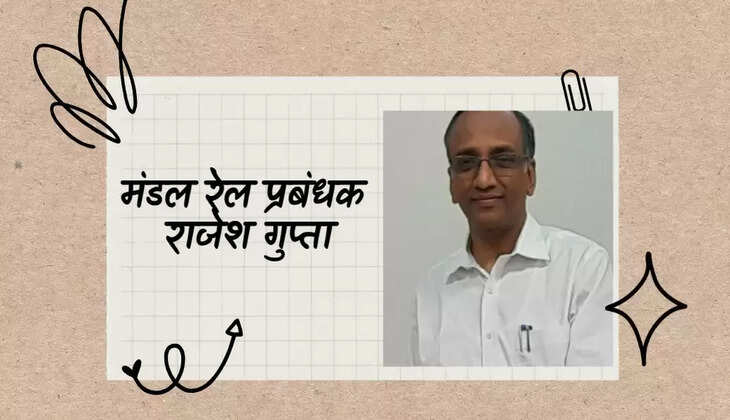 मंडल रेल प्रबंधक
राजेश गुप्ता